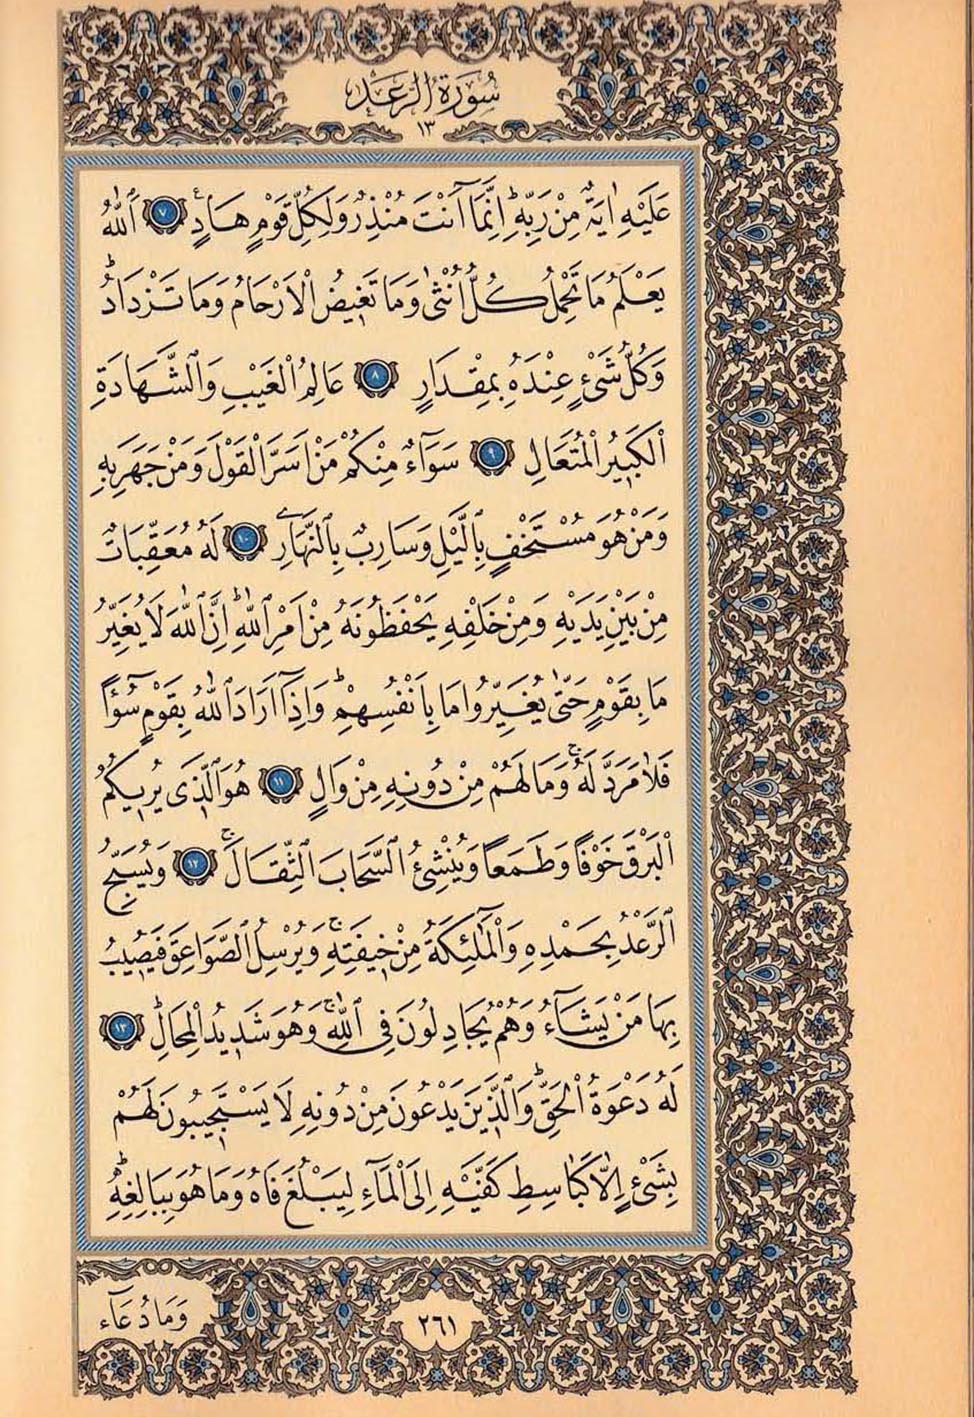 سُورَةُ الرَّعْدِ
١٣
عَلَيْهِ اٰيَةٌ مِنْ رَبِّهٖۜ اِنَّمَٓا اَنْتَ مُنْذِرٌ وَلِكُلِّ قَوْمٍ هَادٍ ﴿٧﴾ اَللّٰهُ
يَعْلَمُ مَا تَحْمِلُ كُلُّ اُنْثٰى وَمَا تَغٖيضُ الْاَرْحَامُ وَمَا تَزْدَادُۜ
وَكُلُّ شَيْءٍ عِنْدَهُ بِمِقْدَارٍ ﴿٨﴾ عَالِمُ الْغَيْبِ وَالشَّهَادَةِ
الْكَبٖيرُ الْمُتَعَالِ ﴿٩﴾ سَوَٓاءٌ مِنْكُمْ مَنْ اَسَرَّ الْقَوْلَ وَمَنْ جَهَرَ بِهٖ
وَمَنْ هُوَ مُسْتَخْفٍ بِالَّيْلِ وَسَارِبٌ بِالنَّهَارِ ﴿١٠﴾ لَهُ مُعَقِّبَاتٌ
مِنْ بَيْنِ يَدَيْهِ وَمِنْ خَلْفِهٖ يَحْفَظُونَهُ مِنْ اَمْرِ اللّٰهِۜ اِنَّ اللّٰهَ لَا يُغَيِّرُ
مَا بِقَوْمٍ حَتّٰى يُغَيِّرُوا مَا بِاَنْفُسِهِمْۜ وَاِذَٓا اَرَادَ اللّٰهُ بِقَوْمٍ سُٓوءًا
فَلَا مَرَدَّ لَهُۚ وَمَا لَهُمْ مِنْ دُونِهٖ مِنْ وَالٍ ﴿١١﴾ هُوَ الَّذٖى يُرٖيكُمُ
الْبَرْقَ خَوْفًا وَطَمَعًا وَيُنْشِئُ السَّحَابَ الثِّقَالَۚ ﴿١٢﴾ وَيُسَبِّحُ
الرَّعْدُ بِحَمْدِهٖ وَالْمَلٰٓئِكَةُ مِنْ خٖيفَتِهٖۚ وَيُرْسِلُ الصَّوَاعِقَ فَيُصٖيبُ
بِهَا مَنْ يَشَٓاءُ وَهُمْ يُجَادِلُونَ فِى اللّٰهِۚ وَهُوَ شَدٖيدُ الْمِحَالِۜ ﴿١٣﴾
لَهُ دَعْوَةُ الْحَقِّۜ وَالَّذٖينَ يَدْعُونَ مِنْ دُونِهٖ لَا يَسْتَجٖيبُونَ لَهُمْ
بِشَيْءٍ اِلَّا كَبَاسِطِ كَفَّيْهِ اِلَى الْمَٓاءِ لِيَبْلُغَ فَاهُ وَمَا هُوَ بِبَالِغِهٖۜ
وَمَا دُعَٓاءُ
٢٦١